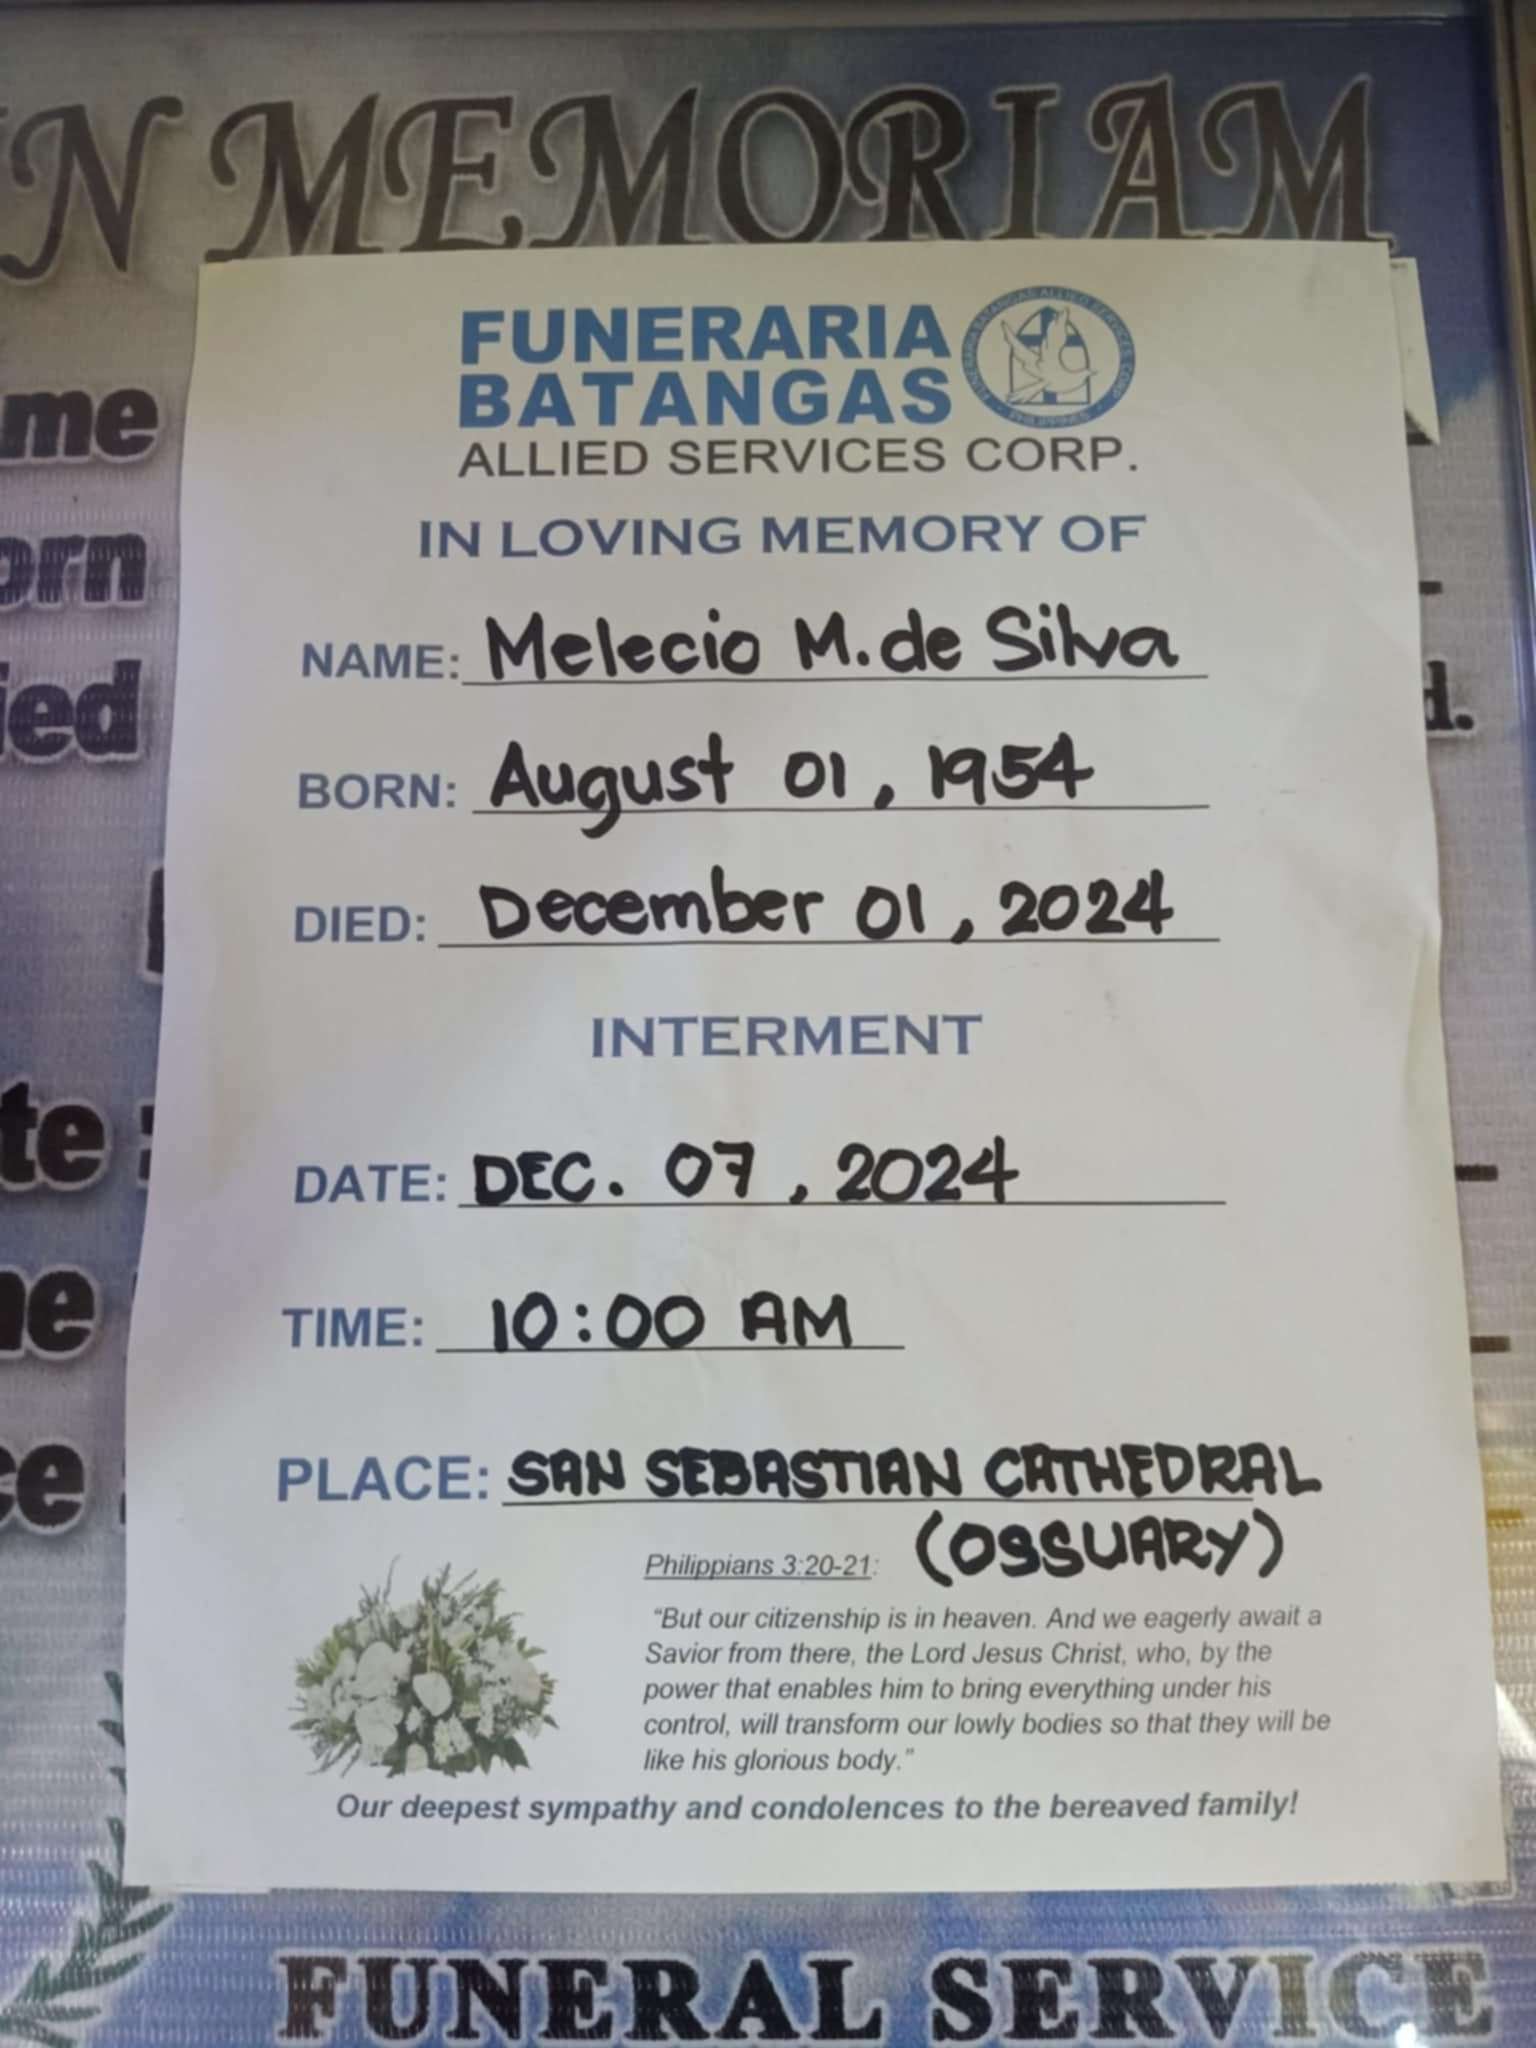 IN MEMORIAM
FUNERARIA
BATANGAS
ALLIED SERVICES CORP.
FUNERARIA BATANGAS ALLIED SERVICES CORP
IN LOVING MEMORY OF
NAME: Melecio M. de Silva
BORN: August 01, 1954
DIED: December 01, 2024
INTERMENT
DATE: DEC. 07, 2024
TIME: 10:00 AM
PLACE: SAN SEBASTIAN CATHEDRAL
(OSSUARY)
Philippians 3:20-21:
"But our citizenship is in heaven. And we eagerly await a
Savior from there, the Lord Jesus Christ, who, by the
power that enables him to bring everything under his
control, will transform our lowly bodies so that they will be
like his glorious body."
Our deepest sympathy and condolences to the bereaved family!
FUNERAL SERVICE